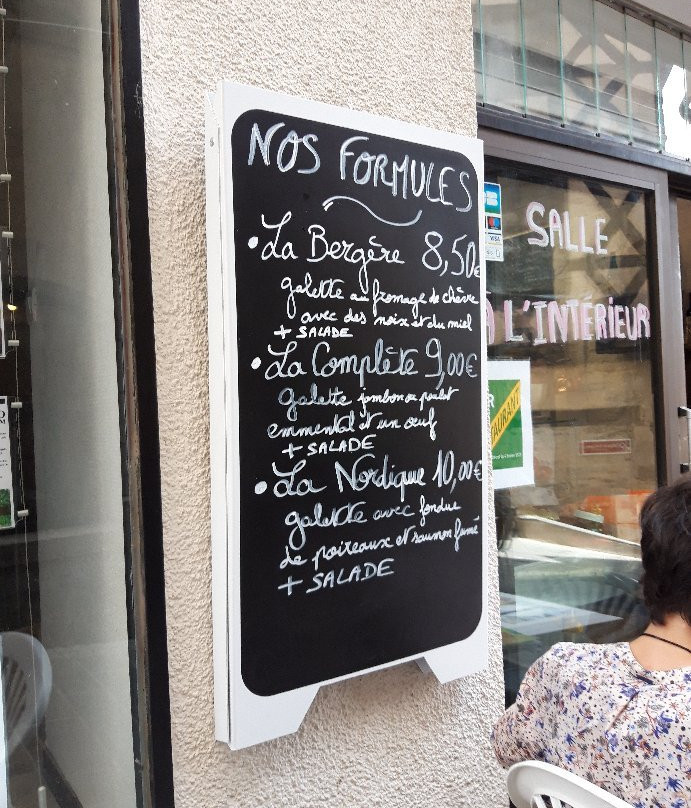 NOS FORMULES
• La Bergère 8,50€
galette au fromage de chèvre
avec des noix et du miel
+ SALADE
• La Complète 9,00€
galette jambon ou poulet
emmental et un œuf
+ SALADE
• La Nordique 10,00€
galette avec fondue
de poireaux et saumon fumé
+ SALADE
SALLE
L'INTÉRIEUR
VISA